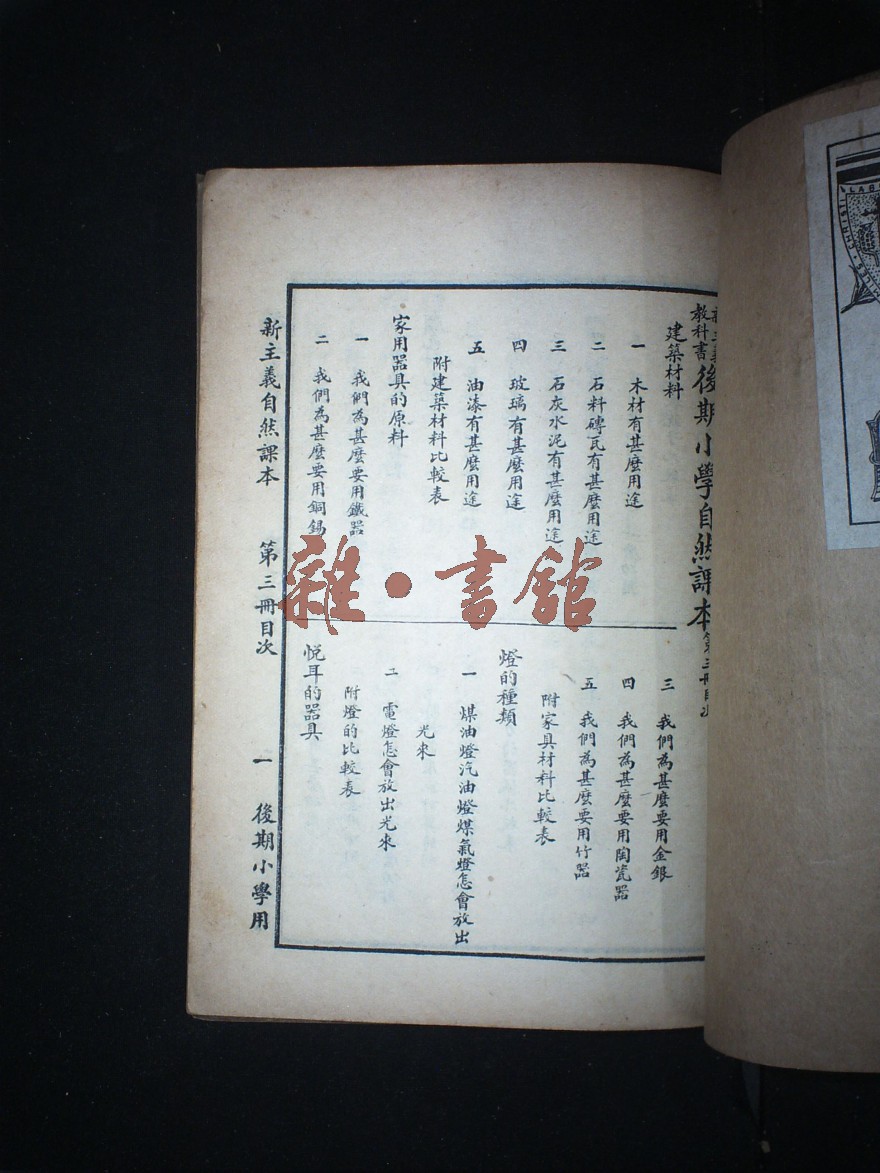 新主義教科書後期小學自然課本第三冊目次
建築材料
一 木材有甚麼用途
二 石料磚瓦有甚麼用途
三 石灰水泥有甚麼用途
四 玻璃有甚麼用途
五 油漆有甚麼用途
附建築材料比較表
家用器具的原料
一 我們為甚麼要用鐵器
二 我們為甚麼要用銅錫
三 我們為甚麼要用金銀
四 我們為甚麼要用陶瓷器
五 我們為甚麼要用竹器
附家具材料比較表
燈的種類
一 煤油燈汽油燈煤氣燈怎會放出
光來
二 電燈怎會放出光來
附燈的比較表
悅耳的器具
新主義自然課本 第三冊目次 一 後期小學用
雜·書館